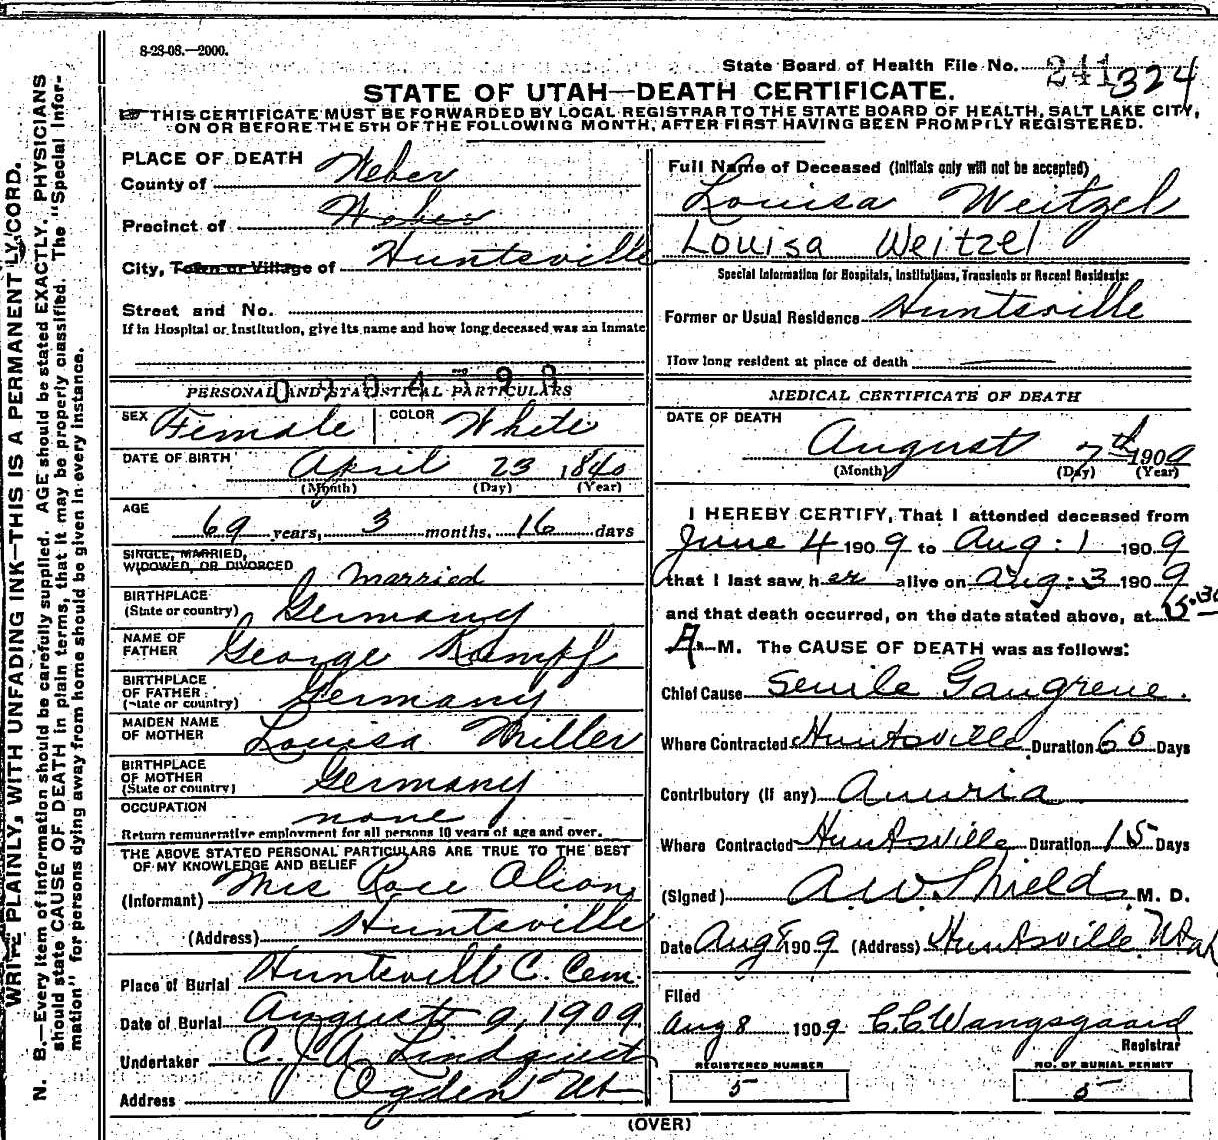 8-23-08.—2000.
State Board of Health File No. 241 324
STATE OF UTAH—DEATH CERTIFICATE.
THIS CERTIFICATE MUST BE FORWARDED BY LOCAL REGISTRAR TO THE STATE BOARD OF HEALTH, SALT LAKE CITY,
ON OR BEFORE THE 5TH OF THE FOLLOWING MONTH, AFTER FIRST HAVING BEEN PROMPTLY REGISTERED.
WRITE PLAINLY, WITH UNFADING INK—THIS IS A PERMANENT LY CORD.
N. B.—Every item of information should be carefully supplied. AGE should be stated EXACTLY. PHYSICIANS
should state CAUSE OF DEATH in plain terms, that it may be properly classified. The "Special Infor-
mation" for persons dying away from home should be given in every instance.
PLACE OF DEATH
County of Weber
Precinct of Weber
City, Town or Village of Huntsville
Street and No.
If in Hospital or Institution, give its name and how long deceased was an Inmate
PERSONAL AND STATISTICAL PARTICULARS
SEX Female COLOR White
DATE OF BIRTH April 23 1840
(Month) (Day) (Year)
AGE
69 years, 3 months. 16 days
SINGLE, MARRIED,
WIDOWED, OR DIVORCED
Married
BIRTHPLACE
(State or country) Germany
NAME OF
FATHER George Kempf
BIRTHPLACE
OF FATHER
(State or country) Germany
MAIDEN NAME
OF MOTHER Louisa Miller
BIRTHPLACE
OF MOTHER
(State or country) Germany
OCCUPATION none
Return remunerative employment for all persons 10 years of age and over.
THE ABOVE STATED PERSONAL PARTICULARS ARE TRUE TO THE BEST
OF MY KNOWLEDGE AND BELIEF
(Informant) Mrs Rose Olson
(Address) Huntsville
Place of Burial Huntsvill C. Cem.
Date of Burial August 9, 1909
Undertaker C. J. A. Lindquist
Address Ogden Ut.
Full Name of Deceased (Initials only will not be accepted)
Louisa Weitzel
Louisa Weitzel
Special Information for Hospitals, Institutions, Transients or Recent Residents:
Former or Usual Residence Huntsville
How long resident at place of death
MEDICAL CERTIFICATE OF DEATH
DATE OF DEATH
August 7th 1909
(Month) (Day) (Year)
I HEREBY CERTIFY, That I attended deceased from
June 4 1909 to Aug: 1 1909
that I last saw her alive on Aug: 3 1909
and that death occurred, on the date stated above, at 5:30
A. M. The CAUSE OF DEATH was as follows:
Chief Cause Senile Gangrene.
Where Contracted Huntsville Duration 60 Days
Contributory (If any) Anuria
Where Contracted Huntsville Duration 15 Days
(Signed) A. W. Shields M. D.
Date Aug 8 1909 (Address) Huntsville Utah
Filed
Aug 8 1909 C. C. Wangsgaard
Registrar
REGISTERED NUMBER
5
NO. OF BURIAL PERMIT
5
(OVER)